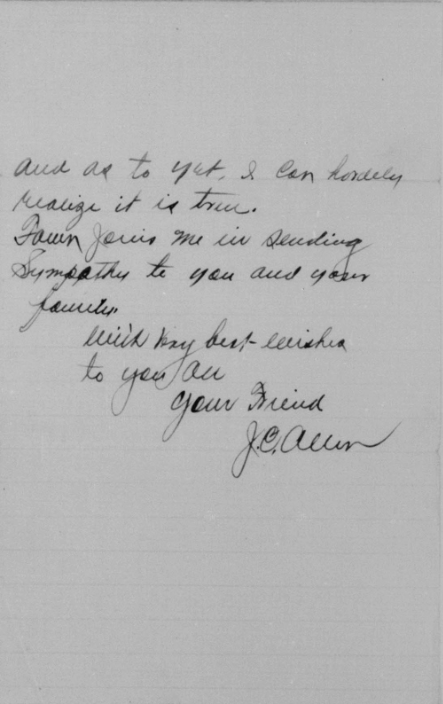 and as to yet, I can hardely
realize it is true.
Fawn Joins me in sending
Sympathy to you and your
family.
With my best-wishes
to you all
Your Friend
J.C. Allen